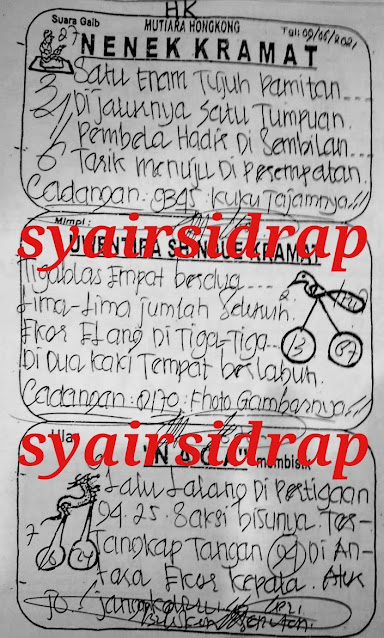 HK
Suara Gaib
MUTIARA HONGKONG
Tgl: 09/06/2021
27
NENEK KRAMAT
Satu Enam Tujuh Pamitan
Di Jauhnya Satu Tumpuan.
Pembela Hadir Di Sembilan
Tarik menuju Di Perempatan.
3
2
1
6
Cadangan: 9345: Kuku Tajamnya
Mimpi:
syairsidrap
KRAMAT
Tigablas Empat berdua
Lima-Lima jumlah Seluruh.
Ekor Elang Di Tiga-Tiga
Di Dua Kaki Tempat berlabuh.
2
13
87
Cadangan: 0170: Photo Gambarnya
syairsidrap
membisik
Lalu Lalang Di Pertigaan
94.25. Saksi bisunya. Ter-
Tangkap Tangan 94 Di An-
Tara Ekor Kepala.
7